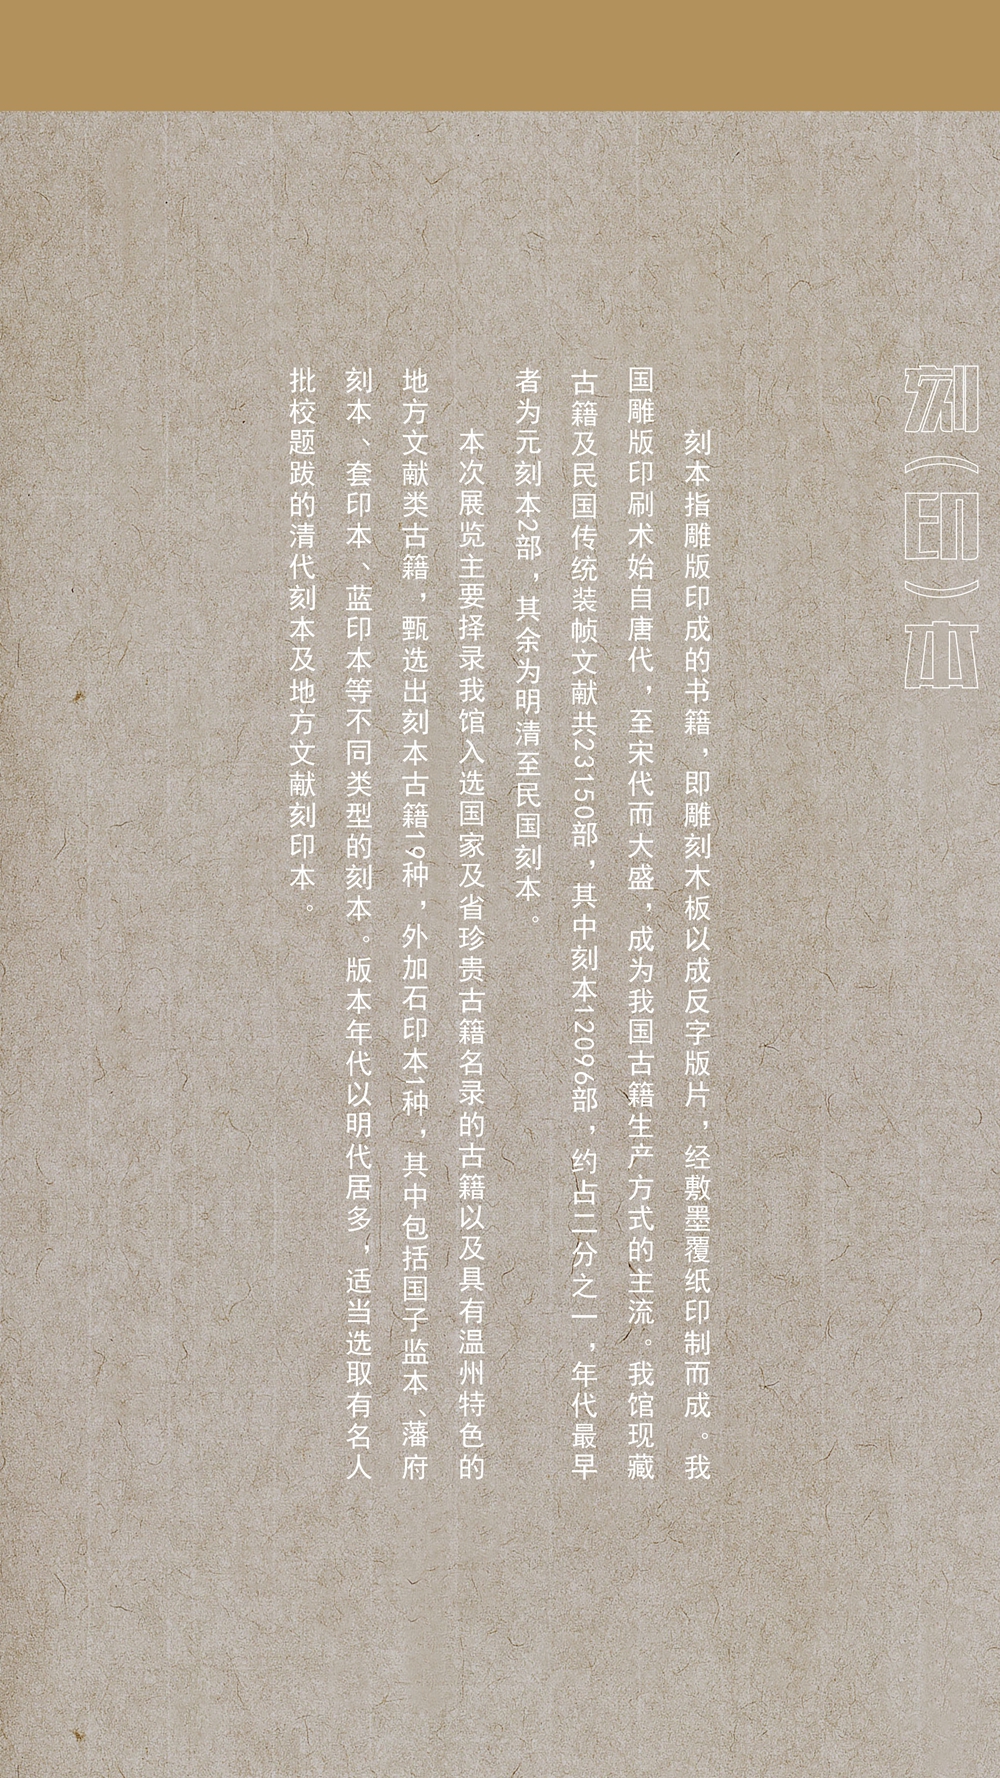 刻（印）本
刻本指雕版印成的书籍，即雕刻木板以成反字版片，经敷墨覆纸印制而成。我
国雕版印刷术始自唐代，至宋代而大盛，成为我国古籍生产方式的主流。我馆现藏
古籍及民国传统装帧文献共23150部，其中刻本12096部，约占二分之一，年代最早
者为元刻本2部，其余为明清至民国刻本。
本次展览主要择录我馆入选国家及省珍贵古籍名录的古籍以及具有温州特色的
地方文献类古籍，甄选出刻本古籍19种，外加石印本1种，其中包括国子监本、藩府
刻本、套印本、蓝印本等不同类型的刻本。版本年代以明代居多，适当选取有名人
批校题跋的清代刻本及地方文献刻印本。